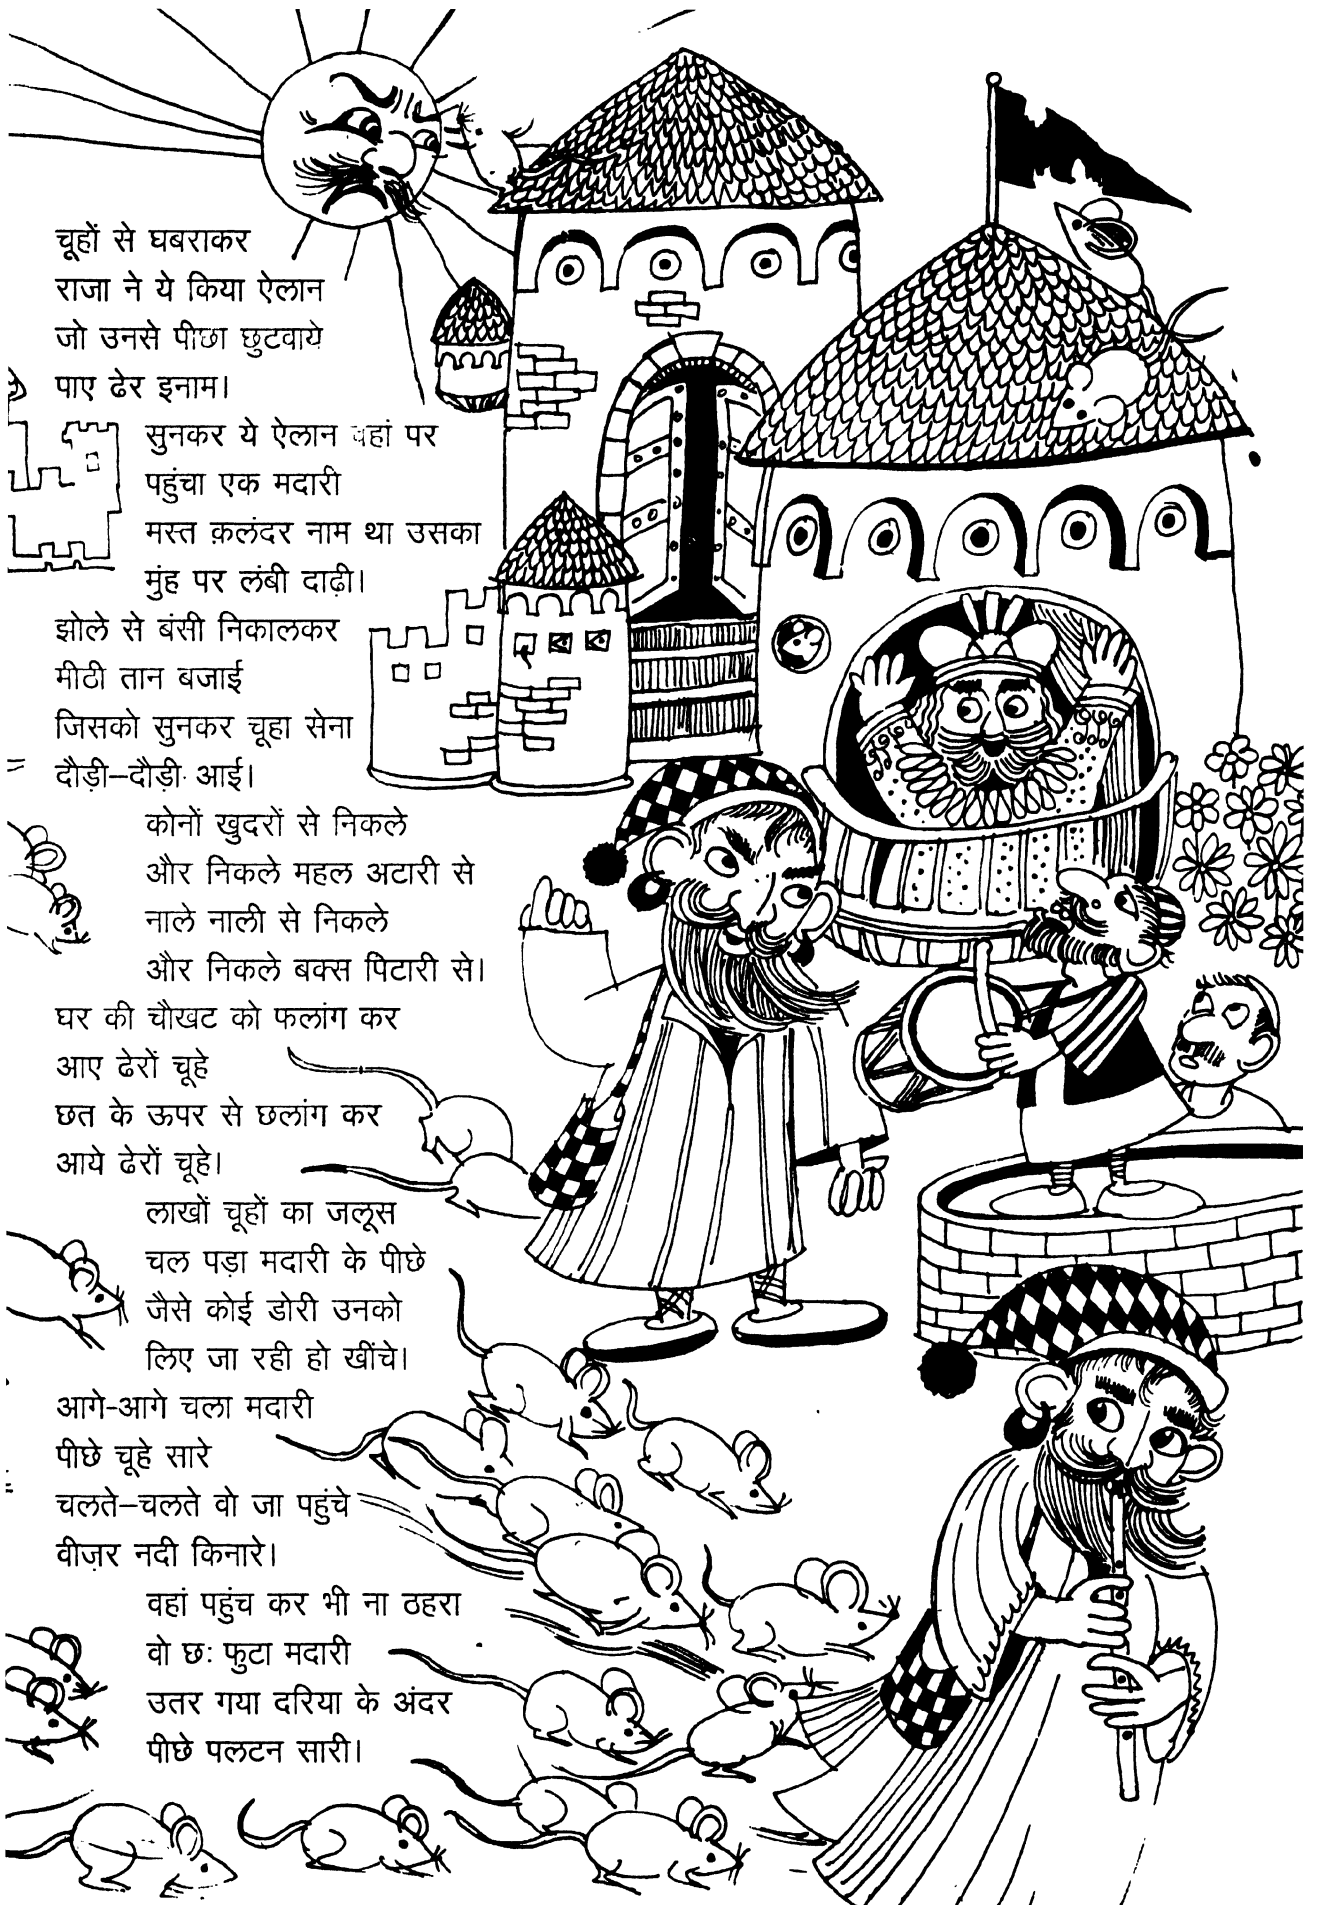 चूहों से घबराकर
राजा ने ये किया ऐलान
जो उनसे पीछा छुटवाये
पाए ढेर इनाम।
सुनकर ये ऐलान वहां पर
पहुंचा एक मदारी
मस्त क़लंदर नाम था उसका
मुंह पर लंबी दाढ़ी।
झोले से बंसी निकालकर
मीठी तान बजाई
जिसको सुनकर चूहा सेना
दौड़ी–दौड़ी आई।
कोनों खुदरों से निकले
और निकले महल अटारी से
नाले नाली से निकले
और निकले बक्स पिटारी से।
घर की चौखट को फलांग कर
आए ढेरों चूहे
छत के ऊपर से छलांग कर
आये ढेरों चूहे।
लाखों चूहों का जलूस
चल पड़ा मदारी के पीछे
जैसे कोई डोरी उनको
लिए जा रही हो खींचे।
आगे-आगे चला मदारी
पीछे चूहे सारे
चलते–चलते वो जा पहुंचे
वीज़र नदी किनारे।
वहां पहुंच कर भी ना ठहरा
वो छः फुटा मदारी
उतर गया दरिया के अंदर
पीछे पलटन सारी।